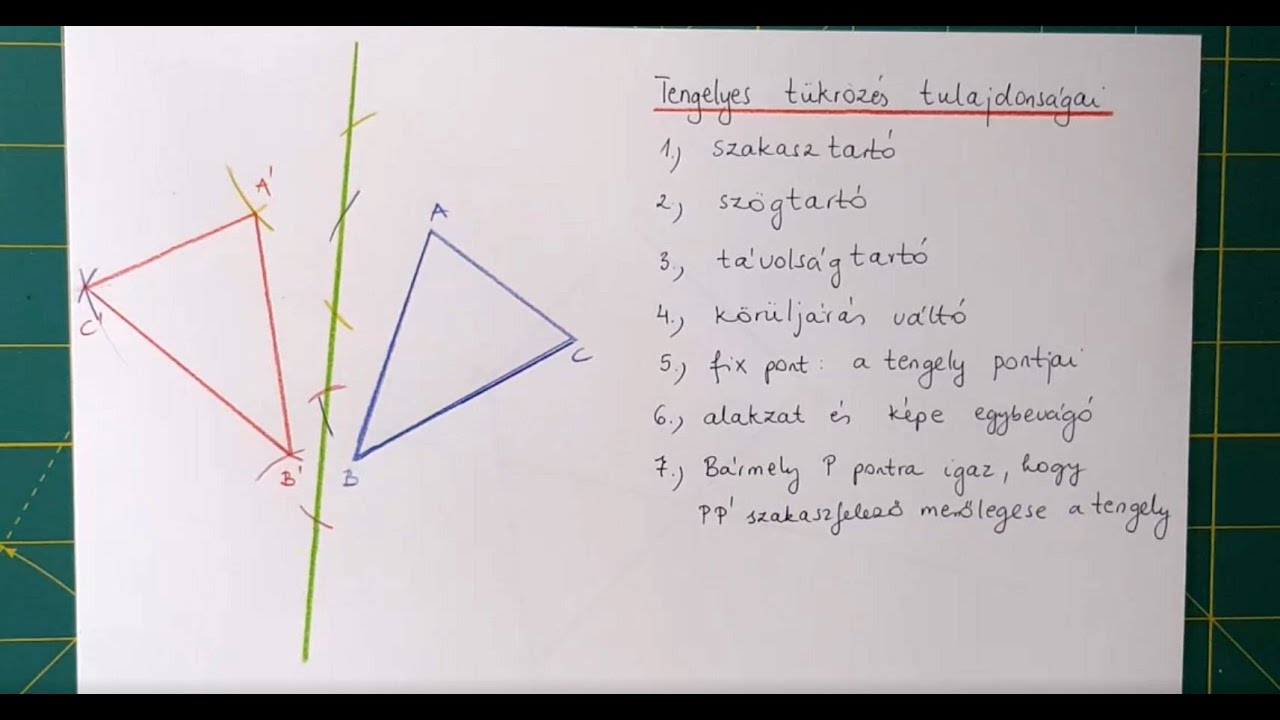 Tengelyes tükrözés tulajdonságai
1.) szakasz tartó
2.) szögtartó
3.) távolság tartó
4.) körüljárás váltó
5.) fix pont: a tengely pontjai
6.) alakzat és képe egybevágó
7.) Bármely P pontra igaz, hogy
PP' szakaszfelező merőlegese a tengely
A'
A
C'
C
B'
B